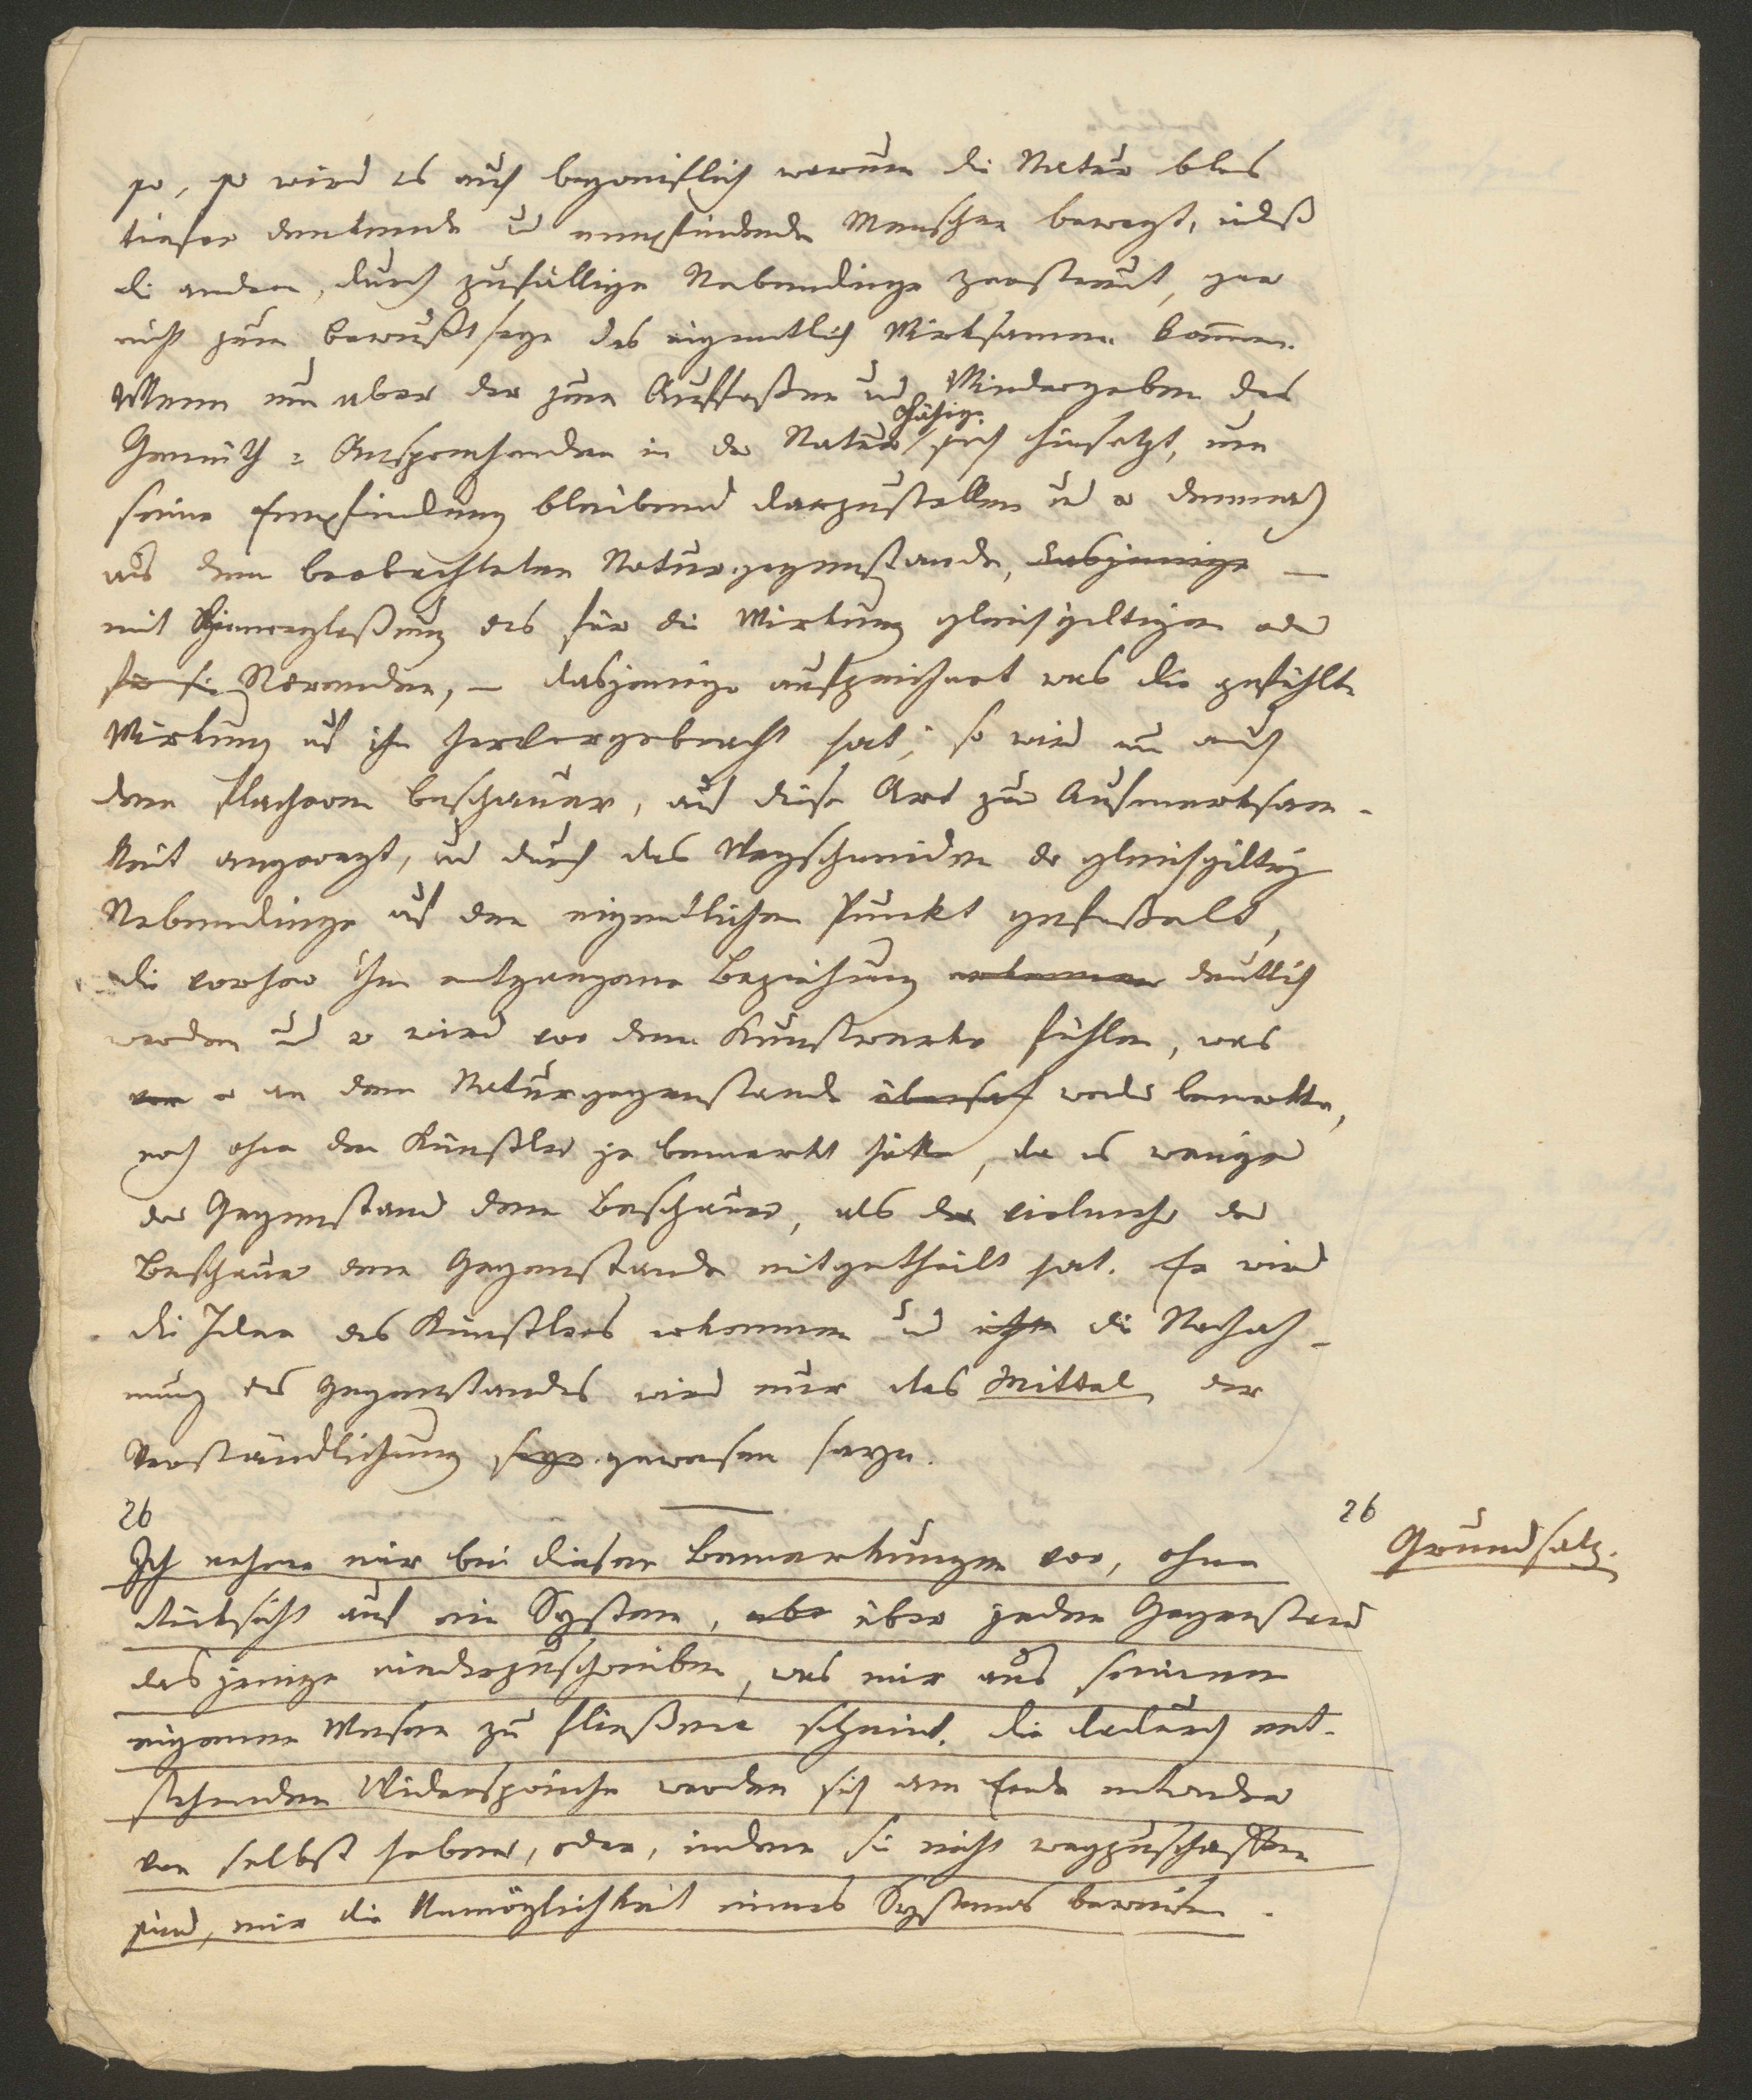 so, so wird es auch begreiflich warum die Natur blos
tiefer denkende ud empfindende Menschen bewegt, indeß
die andern, durch zufällige Nebendinge zerstreut, gar
nicht zum Bewußtseyn des eigentlich Wirksamen kommen.
Wenn nun aber der zum Auffassen und Wiedergeben des
Fähige
Gemüth-Ansprechenden in der Natur sich hinsetzt, um
seine Empfindung bleibend darzustellen ud er demnach
aus dem beobachteten Naturgegenstande, dasjenige —
mit Hinweglaßung des für die Wirkung gleichgiltigen oder
für sie Störenden, — dasjenige aufzeichnet was die gefühlte
Wirkung auf ihn hervorgebracht hat; so wird nun auch
dem flachern Beschauer, auf diese Art zur Aufmerksam-
keit angeregt, und durch das Wegschneiden der gleichgiltig
Nebendinge auf den eigentlichen Punkt gefesselt,
die vorher ihm entgangene Beziehung erkennen deutlich
werden ud er wird vor dem Kunstwerke fühlen, was
von er an dem Naturgegenstande übersah weder bemerkte,
noch ohne den Künstler je bemerkt hätte, da es weniger
der Gegenstand dem Beschauer, als der vielmehr der
Beschauer dem Gegenstande mitgetheilt hat. Er wird
die Idee des Künstlers erkennen ud ihm die Nachah-
mung des Gegenstandes wird nur das Mittel der
Verständlichung seyn gewesen seyn.
26
26
Grundsatz.
Ich nehme mir bei diesen Bemerkungen vor, ohne
Rücksicht auf ein System, über jeden Gegenstand
dasjenige niederzuschreiben, was mir aus seinem
eigenen Wesen zu fließen scheint. Die dadurch ent-
stehenden Widersprüche werden sich am Ende entweder
von selbst heben, oder, indem sie nicht wegzuschaffen
sind, mir die Unmöglichkeit eines Systems beweisen.